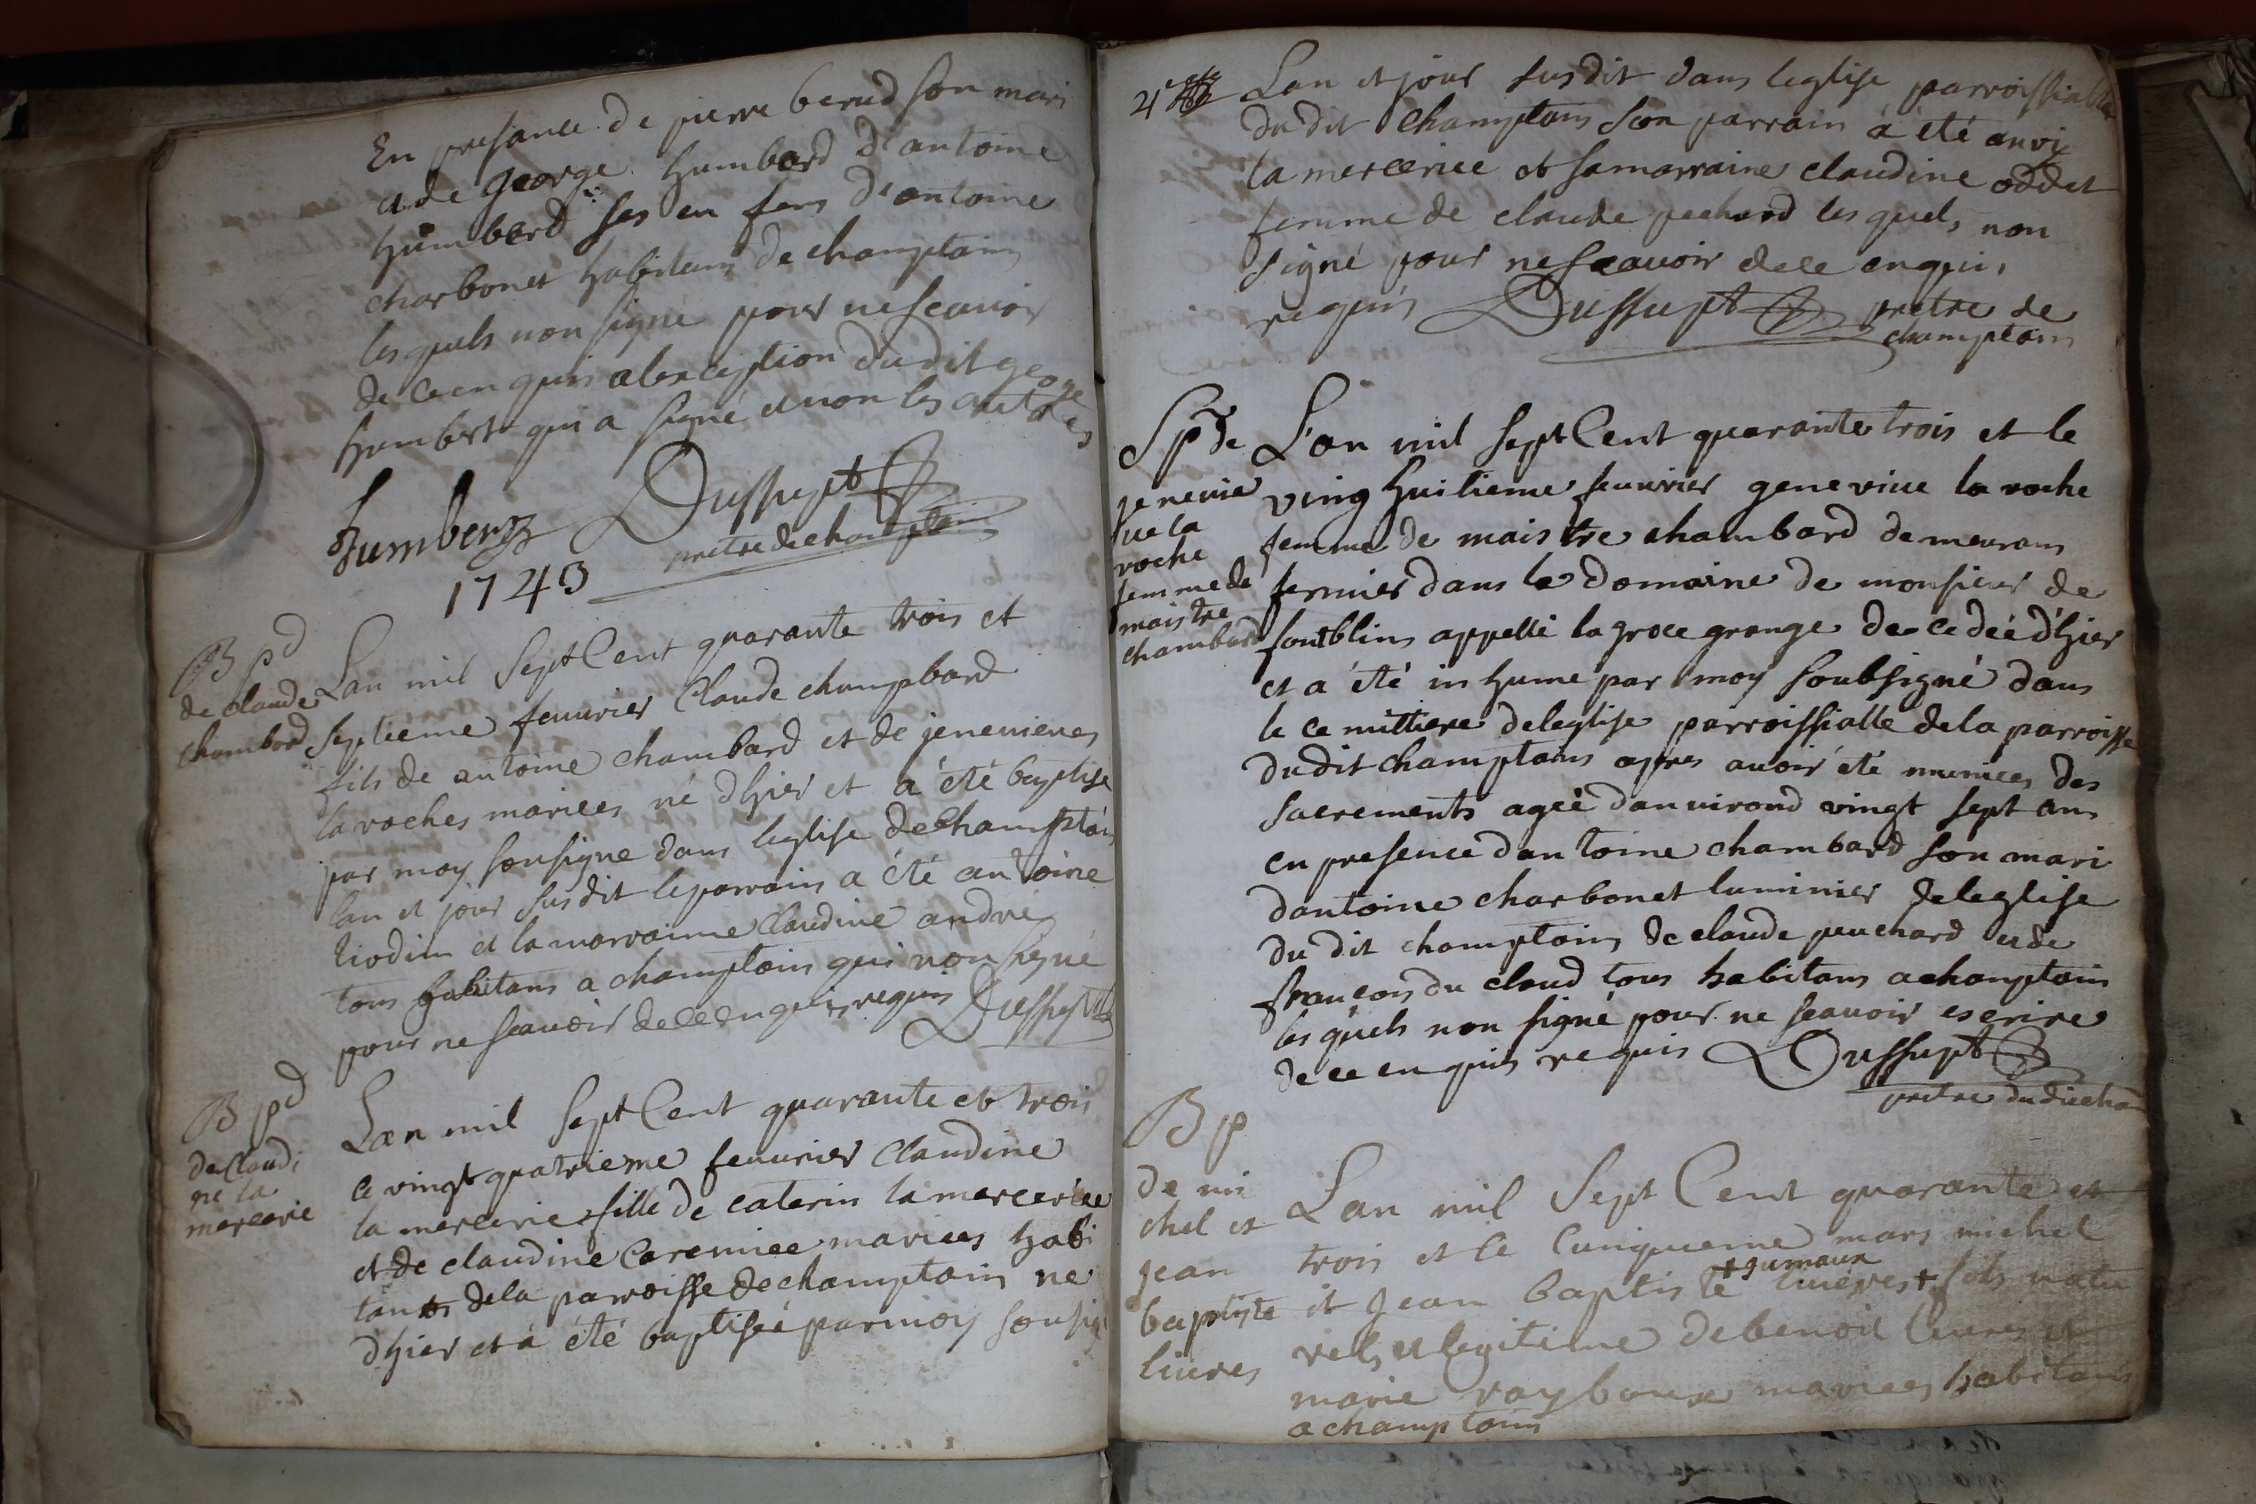 En presance de pierre berud son mari
et de george humberd d'antoine
humberd ses en fens d'antoine
charbonet habitans de champtain
les quels non signe pour ne scavoir
de ce en quis a lexception dudit george
humbert qui a signé et non les autres
humbert Dussupt
pretre de champtain
1743
B pd
de claude
chambard
Lan mil Sept Cent quarante trois et
septieme feuurier Claude champbard
fils de antoine chambard et de jenevieves
la roches mariees né dhier et a été baptise
par moy sousigne dans leglise de Champtain
lan et jour susdit le parrain a été antoine
et la marraine Claudine andre
tous habitans a champtain qui non signé
pour ne scauoir de ce enquis requis Dussupt
B pd
de Claudi
ne la
mercerie
Lan mil Sept Cent quarante et trois
le vingt quatrieme feuurier Claudine
la mercerie fille de caterin la merceriee
et de claudine mariees habi
tants dela parroisse de champtain ne
dhier et a été baptisée par moy sousig
Lan et jour susdit dans leglise parroissialle
du dit Champtain son parrain à été
la merceriee et sa marraine claudine oddet
femme de claude pechard les quels non
signé pour ne scauoir de ce enquis
requis Dussupt pretre de
champtain
Sp de
jenevie
sue la
roche
femme de
maistre
chambard
L'an mil sept Cent quarante trois et le
ving huitieme feuurier genevive la roche
femme de maistre chambard demeurans
fermier dans le domaine de monsieur de
fontblins appellé la groce grange de ce deé d'hier
et a été in hume par moy soubsigné dans
le ce mittiere de leglise parroissialle dela parroisse
dudit champtains apres auoir été munices des
sacrements ageé danvirond vingt sept ans
en presence dantoine chambard son mari
dantoine charbonet luminier de leglise
du dit champtain de claude peuchard et de
françois du cloud tous habitans a champtain
les quels non signé pour ne scauoir escrire
de ce en quis requis Dussupt
pretre dudit cham
B p
de mi
chel et
jean
baptiste
liures
Lan mil Sept Cent quarante et
trois et le Cinquieme mars michel
+ gumaux
et jean baptiste liueres + fils natu
rels et legitime de benoit liures et
marie mariees habitans
a champtain